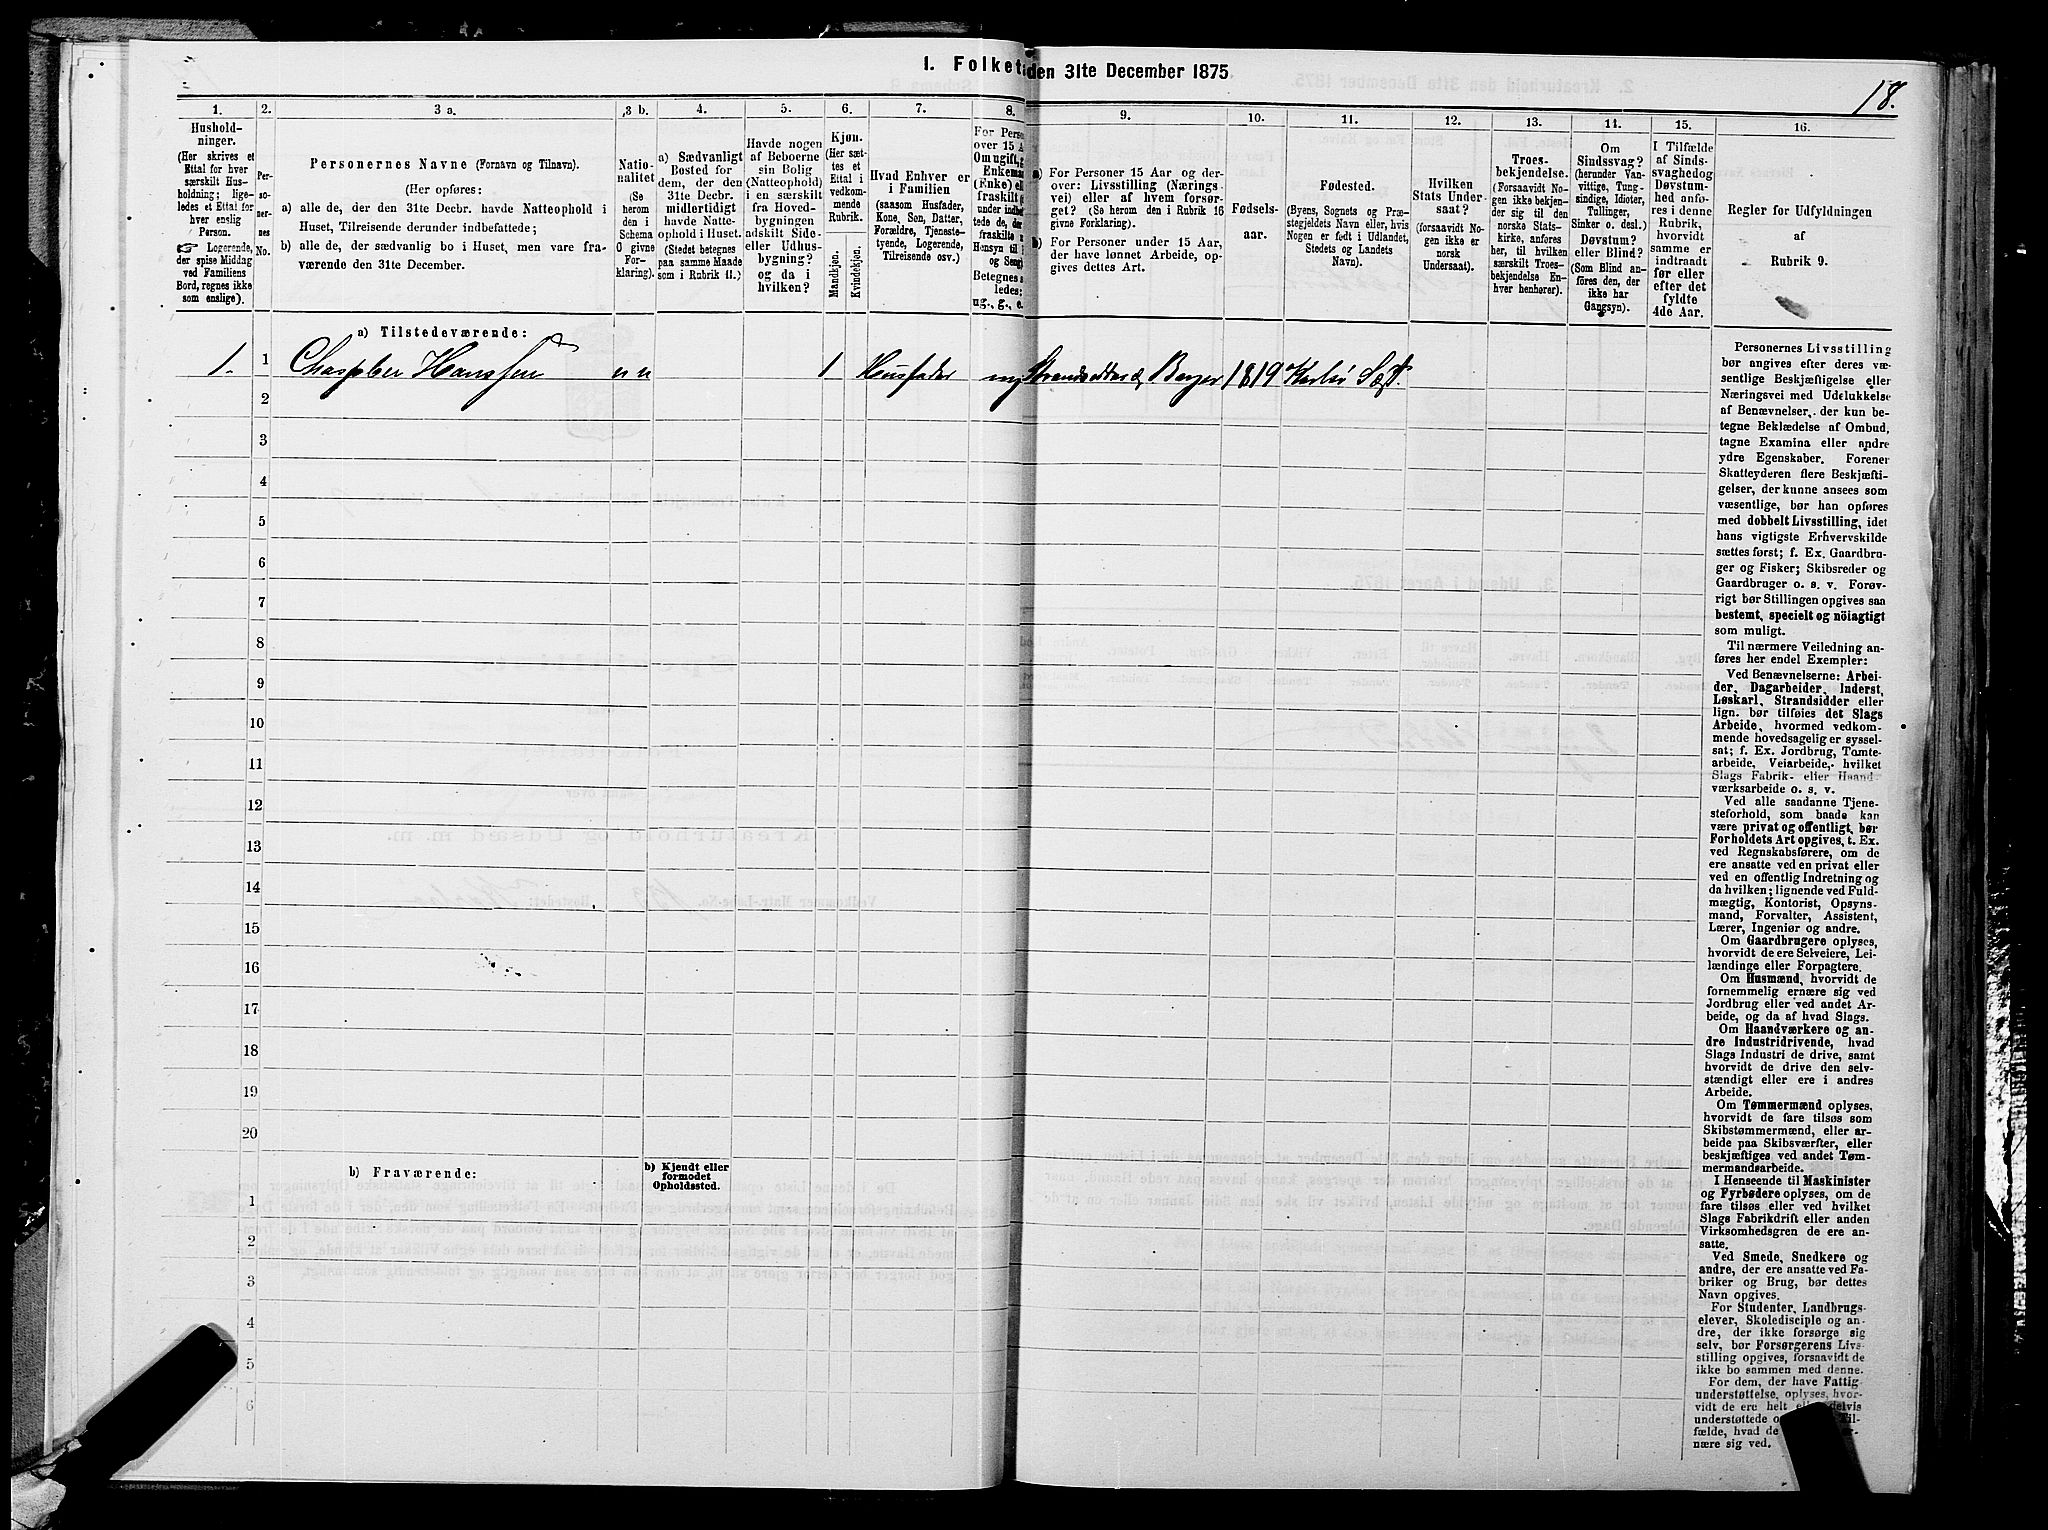 1. Folket
den 31te December 1875
18.
1.
2.
3 a.
3 b.
4.
5.
6.
7.
8.
9.
10.
11.
12.
13.
14.
15.
16.
Hushold-
ninger.
(Her skrives et
Ettal for hver
særskilt Hus-
holdning; lige-
ledes et Ettal for
hver enslig
Person.
☞ Logerende,
der spise Middag
ved Familiens
Bord, regnes ikke
som enslige).
Per-
so-
ner-
nes
No.
Personernes Navne (Fornavn og Tilnavn).
(Her opføres:
a) alle de, der den 31te Decbr. havde Natteophold i
Huset, Tilreisende derunder indbefattede;
b) alle de, der sædvanlig bo i Huset, men vare fra-
værende den 31te December.
Natio-
nalitet
(Se
herom
den i
Schema
O givne
For-
klaring).
a) Sædvanligt
Bosted for
dem, der den
31te Decbr.
midlertidigt
havde Natte-
ophold i Huset.
(Stedet betegnes
paa samme Maade
som i Rubrik 11.)
Havde nogen
af Beboerne
sin Bolig
(Natteophold)
i en særskilt
fra Hoved-
bygningen
adskilt Side-
eller Udhus-
bygning?
og da i
hvilken?
Kjøn.
(Her sæt-
tes et
Ettal i
vedkom-
mende
Rubrik.
Mandkjøn.
Kvindekjøn.
Hvad Enhver er
i Familien
(saasom Husfader,
Kone, Søn, Datter,
Forældre, Tjeneste-
tyende, Logerende,
Tilreisende osv.)
For Perso
over 15 A
Om ugift, g
Enkema
(Enke) ell
fraskilt g
under indbef
tede de,
fraskilte
Hensyn til
og Seng
Betegnes s
ledes:
ug., g., e.
a) For Personer 15 Aar og der-
over: Livsstilling (Nærings-
vei) eller af hvem forsør-
get? (Se herom den i Rubrik 16
givne Forklaring).
b) For Personer under 15 Aar,
der have lønnet Arbeide, op-
gives dettes Art.
Fødsels-
aar.
Fødested.
(Byens, Sognets og Præ-
stegjeldets Navn eller, hvis
Nogen er født i Udlandet,
Stedets og Landets
Navn).
Hvilken
Stats Under-
saat?
(forsaavidt No-
gen ikke er
norsk
Undersaat).
Troes-
bekjendelse.
(Forsaavidt No-
gen ikke bekjen-
der sig til den
norske Stats-
kirke, anføres
her, til hvilken
særskilt Troes-
bekjendelse En-
hver henhører).
Om
Sindssvag?
(herunder Van-
vittige, Tung-
sindige, Idioter,
Tullinger,
Sinker o. desl.)
Døvstum?
eller Blind?
(Som Blind an-
føres den, der
ikke har
Gangsyn).
I Tilfælde
af Sinds-
svaghed og
Døvstum-
hed anfø-
res i denne
Rubrik,
hvorvidt
samme er
indtraadt
før eller
efter det
fyldte
4de Aar.
Regler for Udfyldningen
af
Rubrik 9.
a) Tilstedeværende:
1. 1 Chaspber Hanssen n n 1 Husfader Strandsidder 1819 Karlsø
2
3
4
5
6
7
8
9
10
11
12
13
14
15
16
17
18
19
20
b) Fraværende:
b) Kjendt eller
formodet
Opholdssted.
1
2
3
4
5
6
Personernes Livsstilling
bør angives efter deres væ-
sentlige Beskjæftigelse eller
Næringsvei med Udelukkelse
af Benævnelser, der kun be-
tegne Beklædelse af Ombud,
tagne Examina eller andre
ydre Egenskaber. Forener
Skatteyderen flere Beskjæfti-
gelser, der kunne ansees som
væsentlige, bør han opføres
med dobbelt Livsstilling, idet
hans vigtigste Erhvervskilde
sættes først; f. Ex. Gaardbru-
ger og Fisker; Skibsreder og
Gaardbruger o. s. v. Forøv-
rigt bør Stillingen opgives saa
bestemt, specielt og nöiagtigt
som muligt.
Til nærmere Veiledning an-
føres her endel Exempler:
Ved Benævnelserne: Arbei-
der, Dagarbeider, Inderst,
Løskarl, Strandsidder eller
lign. bør tilføies det Slags
Arbeide, hvormed vedkom-
mende hovedsagelig er syssel-
sat; f. Ex. Jordbrug, Tomte-
arbeide, Veiarbeide, hvilket
Slags Fabrik- eller Haand-
værksarbeide o. s. v.
Ved alle saadanne Tjene-
steforhold, som baade kan
være privat og offentligt, bør
Forholdets Art opgives, t. Ex.
ved Regnskabsførere, om de
ere ansatte ved en privat eller
ved en offentlig Indretning og
da hvilken; lignende ved Fuld-
mægtig, Kontorist, Opsyns-
mand, Forvalter, Assistent,
Lærer, Ingeniør og andre.
Om Gaardbrugere oplyses,
hvorvidt de ere Selveiere, Lei-
lændinge eller Forpagtere.
Om Husmænd, hvorvidt de
fornemmelig ernære sig ved
Jordbrug eller ved andet Ar-
beide, og da af hvad Slags.
Om Haandværkere og an-
dre Industridrivende, hvad
Slags Industri de drive, samt
hvorvidt de drive den selv-
stændigt eller ere i andres
Arbeide.
Om Tømmermænd oplyses,
hvorvidt de fare tilsøs som
Skibstømmermænd, eller ar-
beide paa Skibsværfter, eller
beskjæftiges ved andet Tøm-
mermandsarbeide.
I Henseende til Maskinister
og Fyrbødere oplyses, om de
fare tilsøs eller ved hvilket
Slags Fabrikdrift eller anden
Virksomhedsgren de ere an-
satte.
Ved Smede, Snedkere og
andre, der ere ansatte ved Fa-
briker og Brug, bør dettes
Navn opgives.
For Studenter, Landbrugs-
elever, Skoledisciple og an-
dre, der ikke forsørge sig
selv, bør Forsørgerens Livs-
stilling opgives, forsaavidt de
ikke bo sammen med denne.
For dem, der have Fattig-
understøttelse, oplyses, hvor-
vidt de ere helt eller delvis
understøttede
fælde, hvad de
nære sig ved.